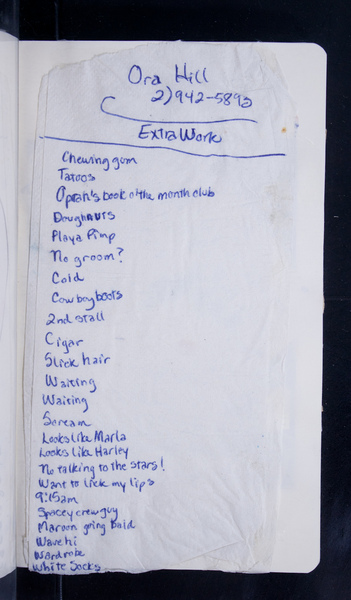 Ora Hill
2) 942-5892
Extra Work
Chewing gum
Tatoos
Oprah's book o' the month club
Doughnuts
Playa Pimp
No groom?
Cold
Cowboy boots
2nd stall
Cigar
Slick hair
Waiting
Waiting
Scream
Looks like Marla
Looks like Harley
No talking to the stars!
Want to lick my lips
9:15am
Spacey crew guy
Maroon going bald
Wave hi
Wardrobe
White Socks